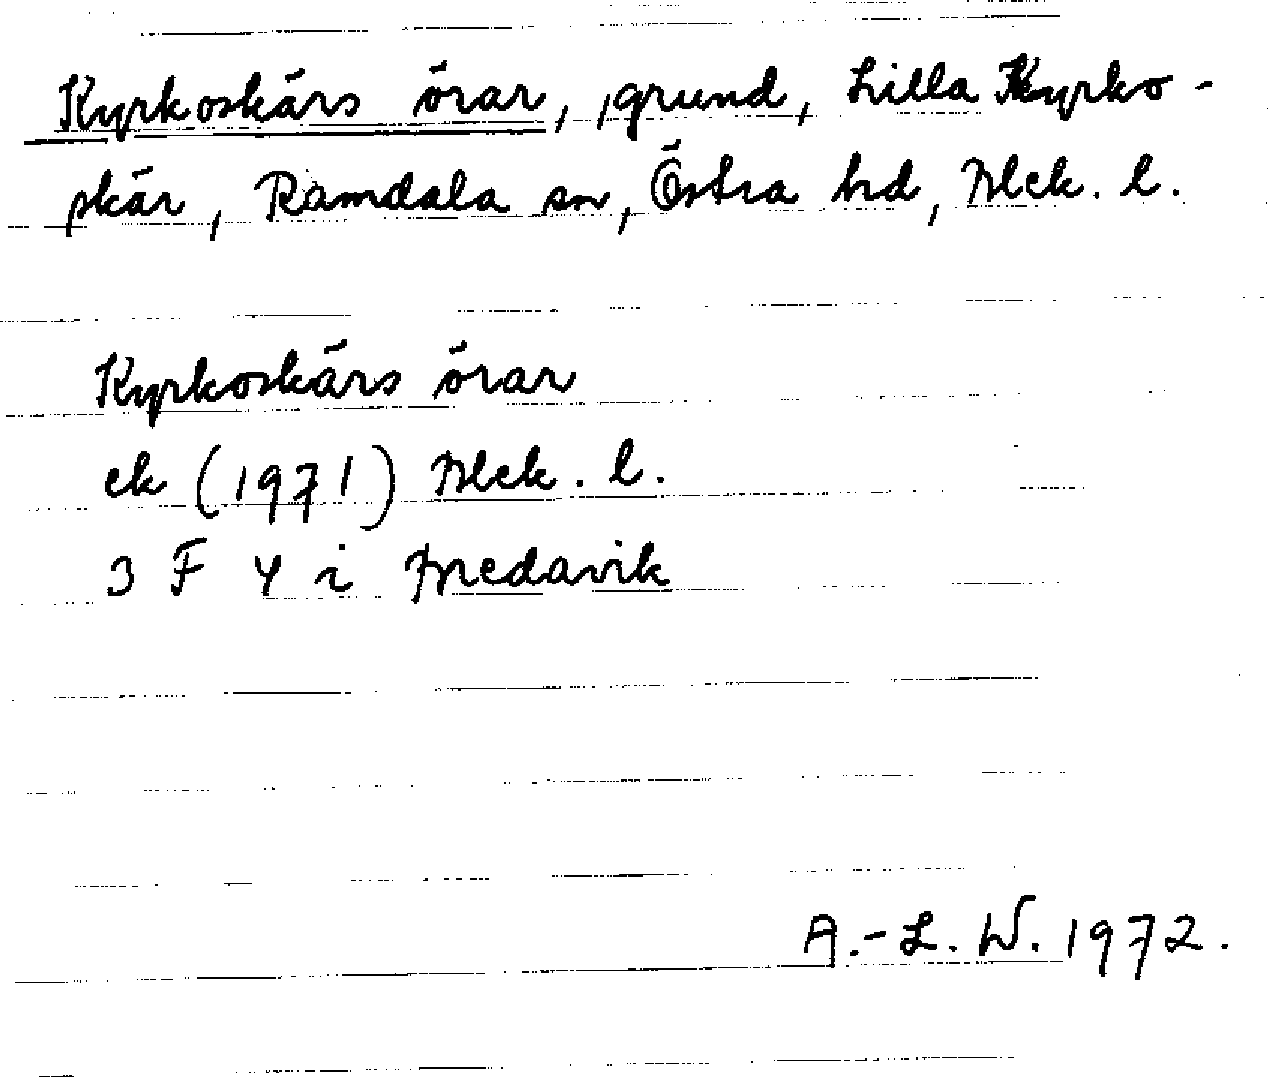 Kyrkoskärs örar, grund, Lilla Kyrko-
skär, Ramdala sn, Östra hd, Blek. l.
Kyrkoskärs örar
ek (1971) Blek. l.
3 F 4 i Bredavik
A.-L. W. 1972.